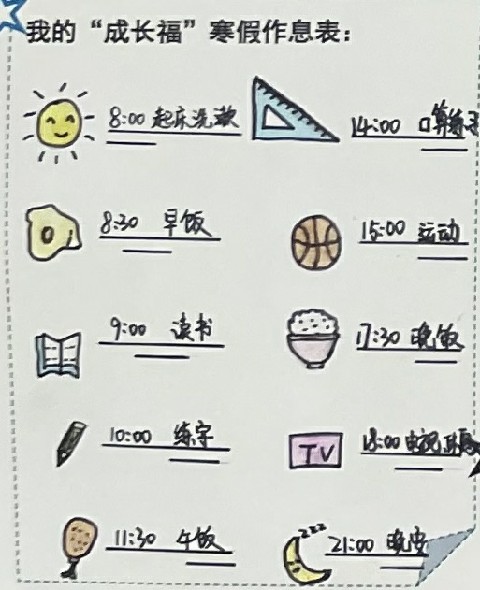 我的“成长福”寒假作息表：
8:00 起床洗漱
8:30 早饭
9:00 读书
10:00 练字
11:30 午饭
14:00 口算练习
15:00 运动
17:30 晚饭
18:00 电视
TV
21:00 晚安
zzz